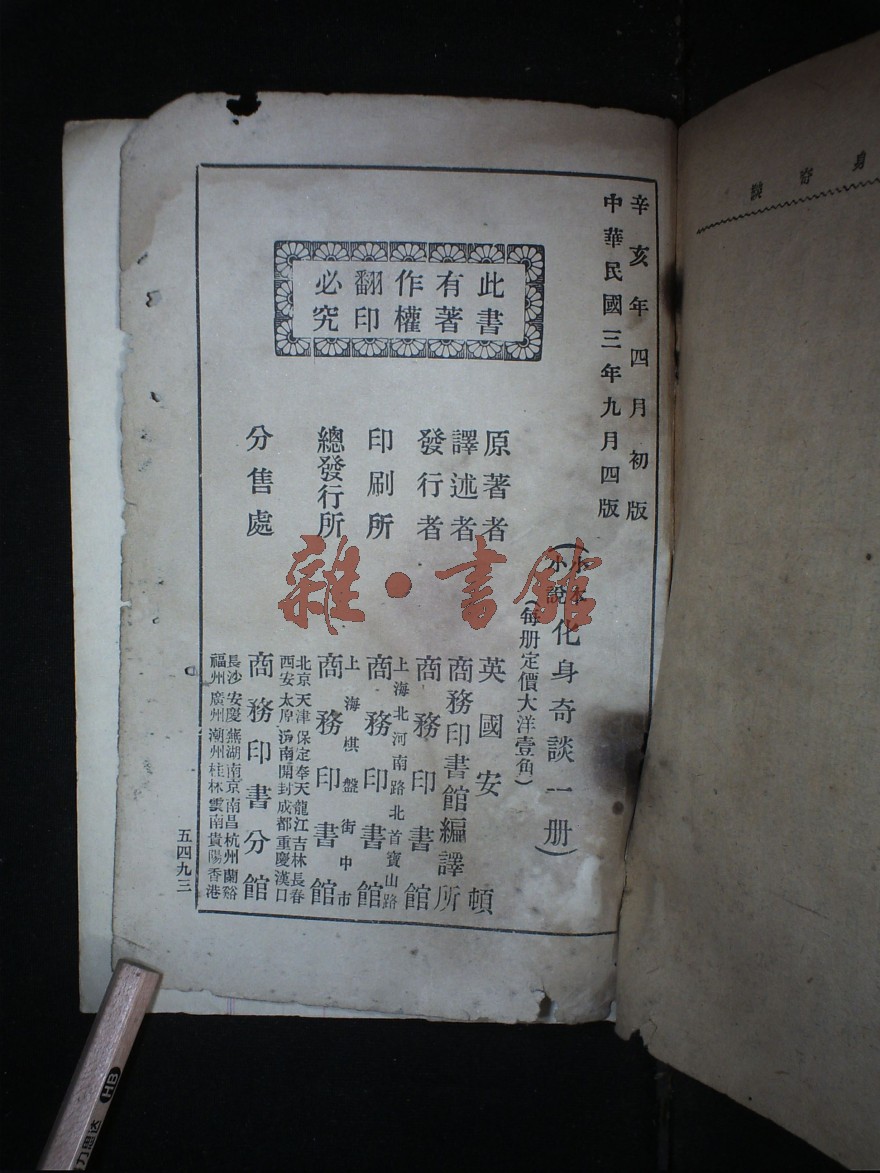 辛亥年四月初版
中華民國三年九月四版
此書
有著
作權
翻印
必究
(小本小說化身奇談一册)
(每册定價大洋壹角)
原著者 英國安頓
譯述者 商務印書館編譯所
發行者 商務印書館
印刷所 上海北河南路北首寶山路 商務印書館
總發行所 上海棋盤街中市 商務印書館
分售處
北京天津保定奉天龍江吉林長春
西安太原濟南開封成都重慶漢口
商務印書分館
長沙安慶蕪湖南京南昌杭州蘭谿
福州廣州潮州桂林雲南貴陽香港
五四九三
身奇談
雜·書館
HB